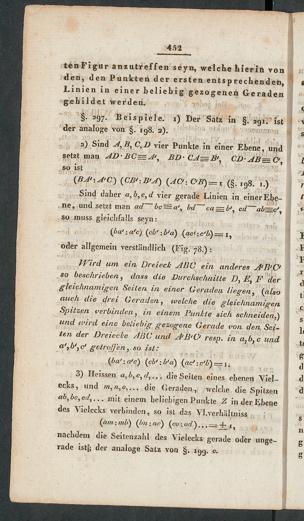 452
ten Figur anzutreffen seyn, welche hierin von
den, den Punkten der ersten entsprechenden,
Linien in einer beliebig gezogenen Geraden
gebildet werden.
§. 297. Beispiele. 1) Der Satz in §. 291. ist
der analoge von §. 198. 2).
2) Sind A, B, C, D vier Punkte in einer Ebene, und
setzt man AD·BC≡A', BD·CA≡B', CD·AB≡C',
so ist
(BA':A'C) (CB':B'A) (AC':C'B)=1 (§. 198. 1.)
Sind daher a, b, c, d vier gerade Linien in einer Ebe-
ne, und setzt man
so muss gleichfalls seyn:
(ba':a'c) (cb':b'a) (ac':c'b)=1,
oder allgemein verständlich (Fig. 78.):
Wird um ein Dreieck ABC ein anderes A'B'C'
so beschrieben, dass die Durchschnitte D, E, F der
gleichnamigen Seiten in einer Geraden liegen, (also
auch die drei Geraden, welche die gleichnamigen
Spitzen verbinden, in einem Punkte sich schneiden,)
und wird eine beliebig gezogene Gerade von den Sei-
ten der Dreiecke ABC und A'B'C' resp. in a, b, c und
a', b', c' getroffen, so ist:
(ba':a'c) (cb':b'a) (ac':c'b)=1.
3) Heissen a, b, c, d,... die Seiten eines ebenen Viel-
ecks, und m, n, o,... die Geraden, welche die Spitzen
ab, bc, cd,... mit einem beliebigen Punkte Z in der Ebene
des Vielecks verbinden, so ist das VI.verhältniss
(am:mb) (bn:nc) (co:od)...=±1,
nachdem die Seitenzahl des Vielecks gerade oder unge-
rade ist; der analoge Satz von §. 199. c.